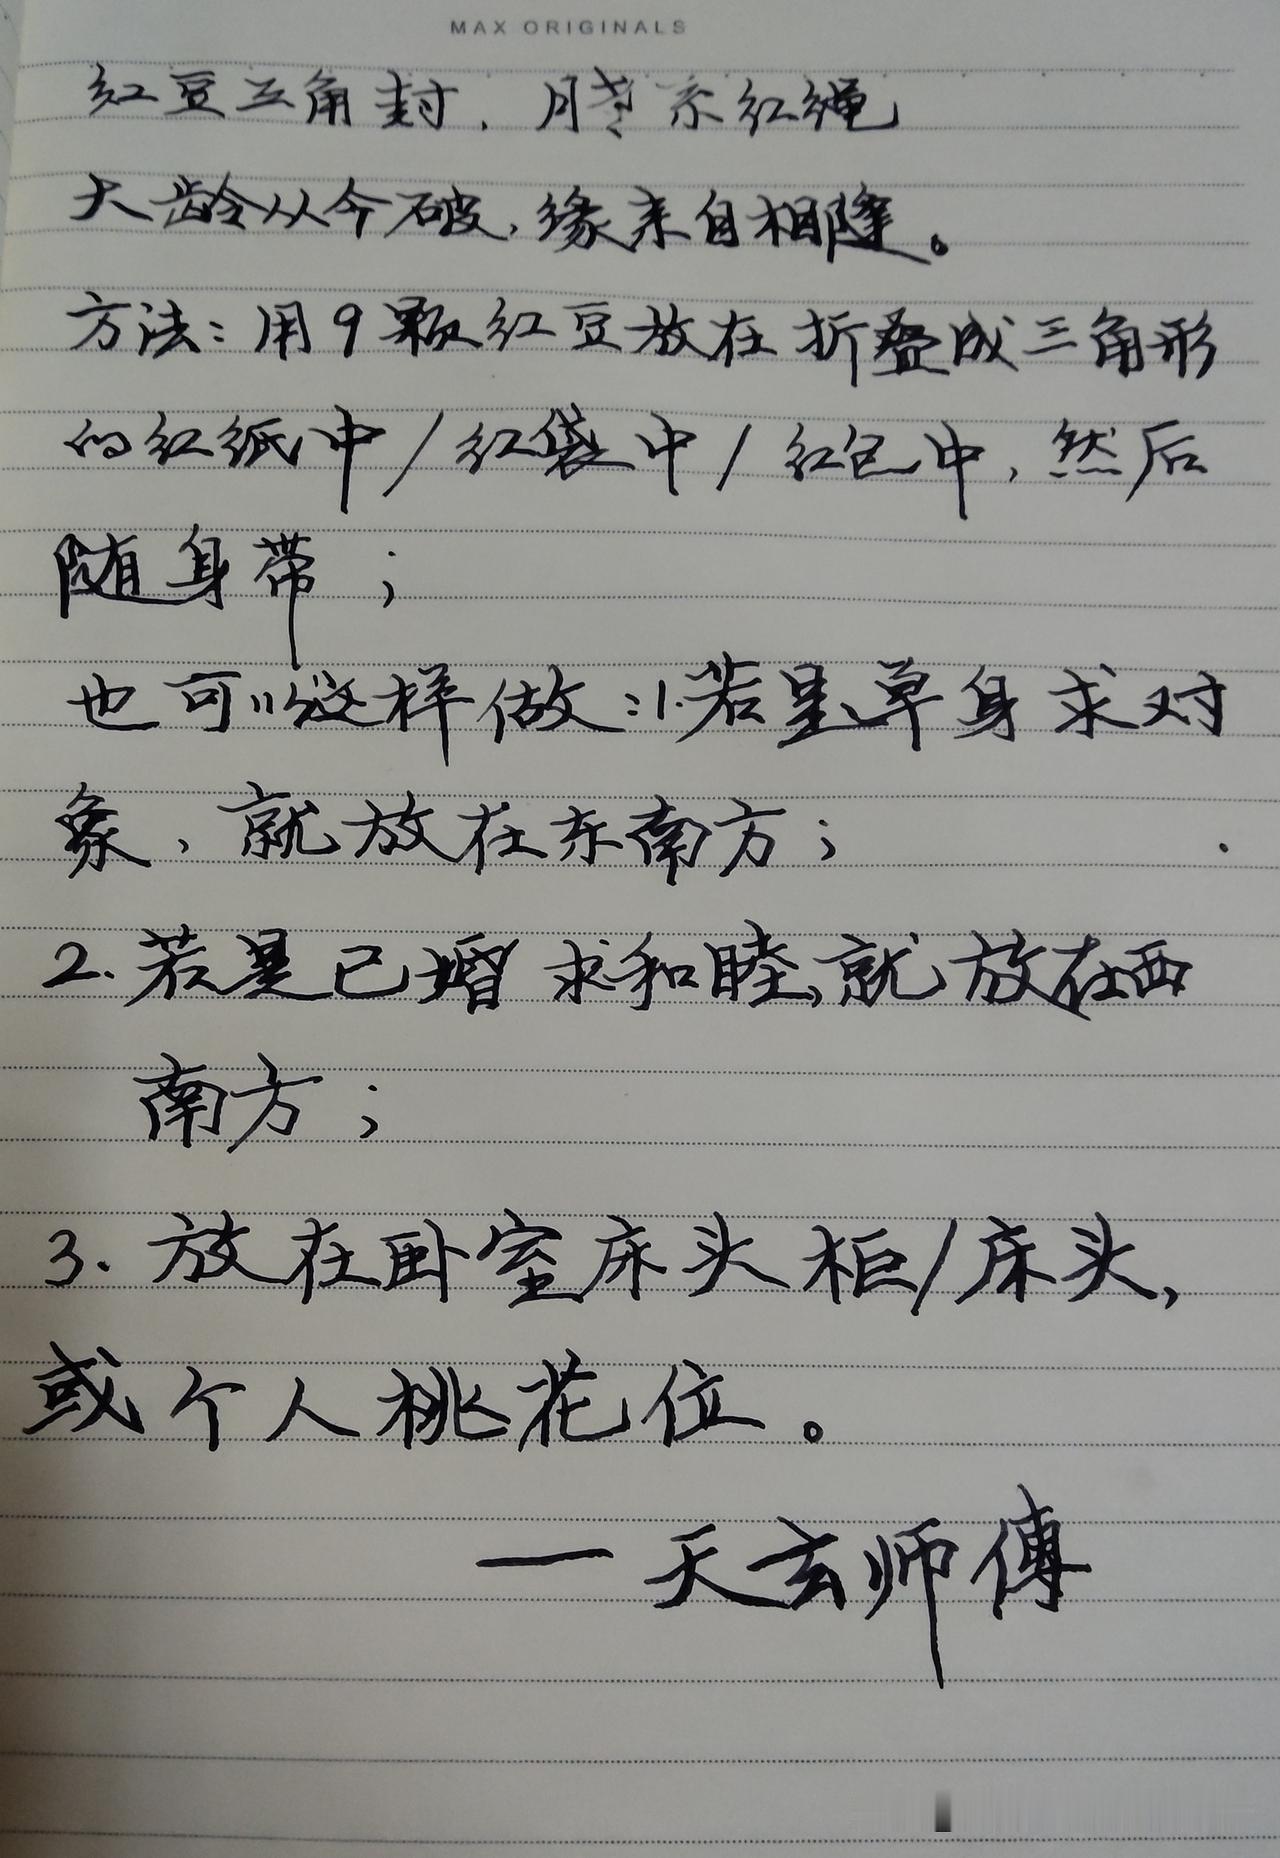 MAX ORIGINALS
红豆三角封，月老系红绳
大龄从今破，缘来自相逢。
方法：用9颗红豆放在折叠成三角形
的红纸中/红袋中/红包中，然后
随身带；
也可以这样做：1.若是单身求对
象，就放在东南方；
2.若是已婚求和睦，就放在西
南方；
3.放在卧室床头柜/床头，
或个人桃花位。
—天玄师傅